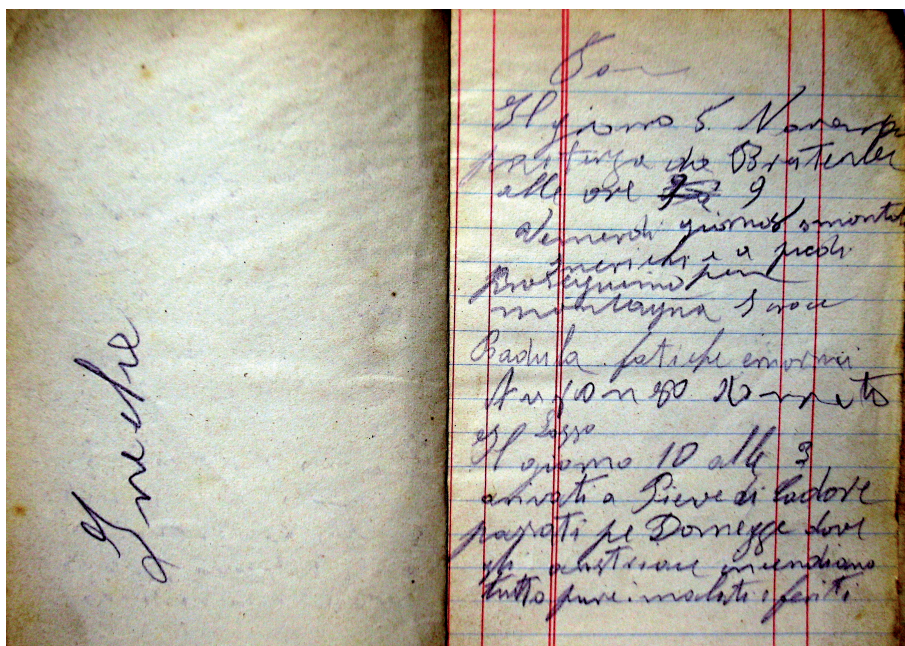 Il giorno 5 Novemb
partenza da
alle ore 9
Venerdi giorno smonta
e a piedi
Proseguimo per
montagna S croce
Badula fatiche enormi
Auronzo
Lozzo
Il giorno 10 alle 3
arrivati a Pieve di Cadore
passati pe Domegge dove
gli austriaci incendiano
tutto pure i malati i feriti